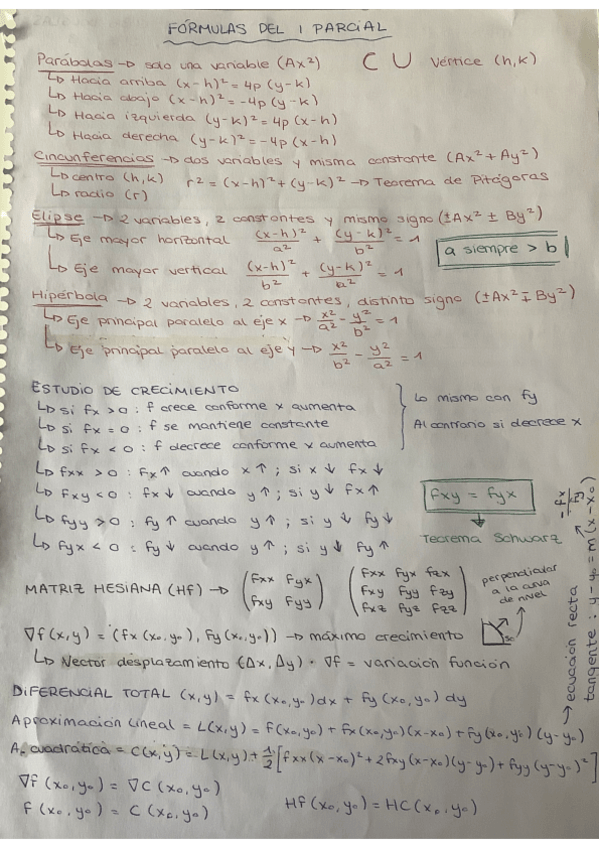 FÓRMULAS DEL 1 PARCIAL
Parábolas → solo una variable (Ax²) C U Vértice (h,k)
↳ Hacia arriba (x-h)² = 4p (y-k)
↳ Hacia abajo (x-h)² = -4p (y-k)
↳ Hacia izquierda (y-k)² = 4p (x-h)
↳ Hacia derecha (y-k)² = -4p (x-h)
Circunferencias → dos variables y misma constante (Ax² + Ay²)
↳ centro (h,k) r² = (x-h)² + (y-k)² → Teorema de Pitágoras
↳ radio (r)
Elipse → 2 variables, 2 constantes y mismo signo (±Ax² ± By²)
↳ Eje mayor horizontal (x-h)²/a² + (y-k)²/b² = 1 a siempre > b
↳ Eje mayor vertical (x-h)²/b² + (y-k)²/a² = 1
Hipérbola → 2 variables, 2 constantes, distinto signo (±Ax² ∓ By²)
↳ Eje principal paralelo al eje x → x²/a² - y²/b² = 1
↳ Eje principal paralelo al eje y → x²/b² - y²/a² = 1
ESTUDIO DE CRECIMIENTO
↳ si fx > 0 : f crece conforme x aumenta
↳ si fx = 0 : f se mantiene constante
↳ si fx < 0 : f decrece conforme x aumenta
Lo mismo con fy
Al contrario si decrece x
↳ fxx > 0 : fx ↑ cuando x ↑ ; si x ↓ fx ↓
↳ fxy < 0 : fx ↓ cuando y ↑ ; si y ↓ fx ↑
↳ fyy > 0 : fy ↑ cuando y ↑ ; si y ↓ fy ↓
↳ fyx < 0 : fy ↓ cuando y ↑ ; si y ↓ fy ↑
fxy = fyx
Teorema Schwarz
MATRIZ HESIANA (Hf) → (fxx fyx / fxy fyy) (fxx fyx fzx / fxy fyy fzy / fxz fyz fzz)
perpendicular
a la curva
de nivel
∇f (x,y) = (fx (x₀,y₀), fy (x₀,y₀)) → máximo crecimiento
↳ Vector desplazamiento (Δx, Δy) · ∇f = variación función
DIFERENCIAL TOTAL (x,y) = fx (x₀,y₀) dx + fy (x₀,y₀) dy
Aproximación Lineal = L(x,y) = f(x₀,y₀) + fx (x₀,y₀)(x-x₀) + fy (x₀,y₀) (y-y₀)
→ ecuación recta
tangente : y - y₀ = m (x - x₀)
-fx/fy
A. cuadrática = C(x,y) = L(x,y) + 1/2 [fxx (x-x₀)² + 2fxy (x-x₀)(y-y₀) + fyy (y-y₀)²]
∇f (x₀,y₀) = ∇C (x₀,y₀)
f (x₀,y₀) = C (x₀,y₀) Hf (x₀,y₀) = HC (x₀,y₀)